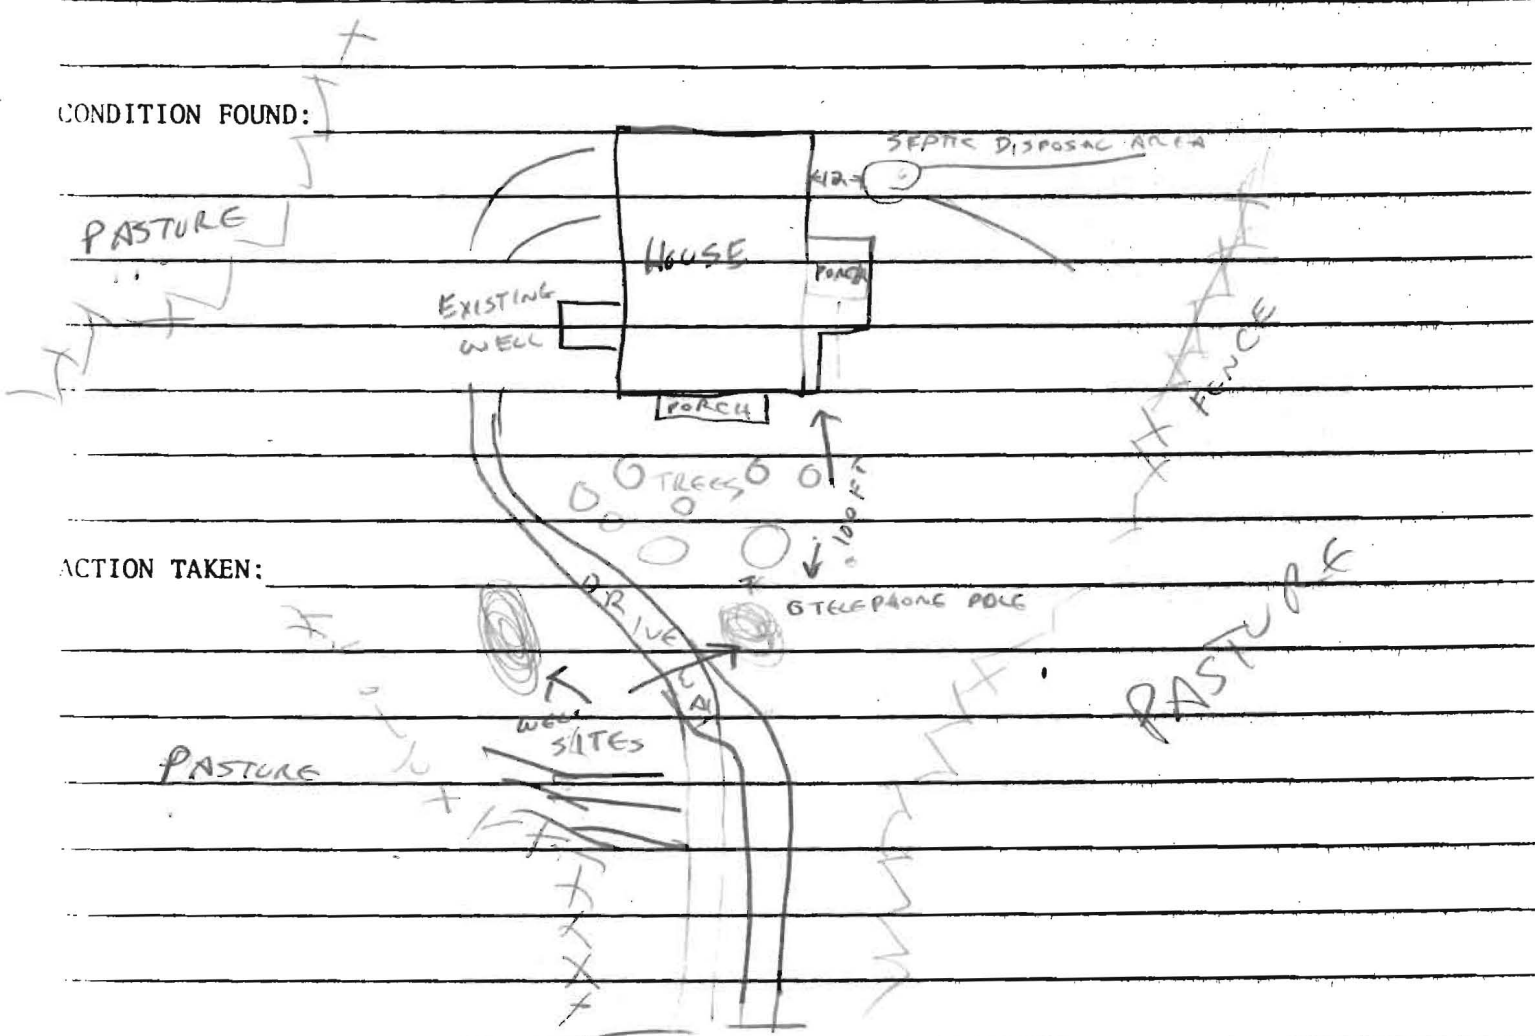 CONDITION FOUND:
SEPTIC DISPOSAL AREA
12
PASTURE
HOUSE
PORCH
EXISTING
WELL
FENCE
PORCH
TREES
100 FT
ACTION TAKEN:
TELEPHONE POLE
DRIVEWAY
PASTURE
WELL
SITES
PASTURE